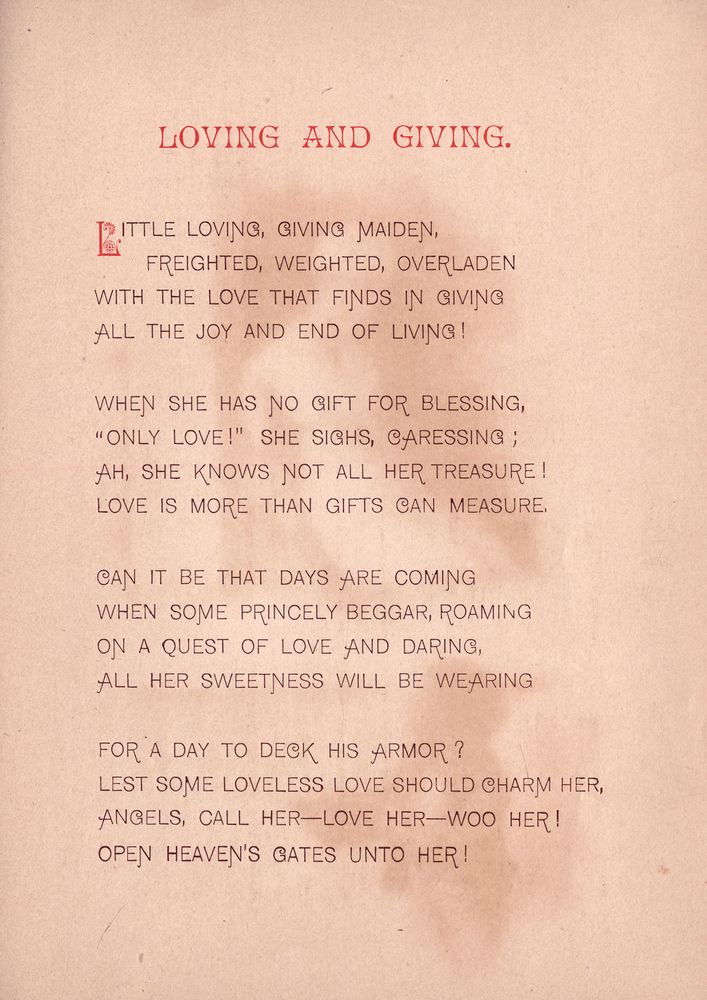 LOVING AND GIVING.
LITTLE LOVING, GIVING MAIDEN,
FREIGHTED, WEIGHTED, OVERLADEN
WITH THE LOVE THAT FINDS IN GIVING
ALL THE JOY AND END OF LIVING!
WHEN SHE HAS NO GIFT FOR BLESSING,
"ONLY LOVE!" SHE SIGHS, CARESSING;
AH, SHE KNOWS NOT ALL HER TREASURE!
LOVE IS MORE THAN GIFTS CAN MEASURE.
CAN IT BE THAT DAYS ARE COMING
WHEN SOME PRINCELY BEGGAR, ROAMING
ON A QUEST OF LOVE AND DARING,
ALL HER SWEETNESS WILL BE WEARING
FOR A DAY TO DECK HIS ARMOR?
LEST SOME LOVELESS LOVE SHOULD CHARM HER,
ANGELS, CALL HER—LOVE HER—WOO HER!
OPEN HEAVEN'S GATES UNTO HER!